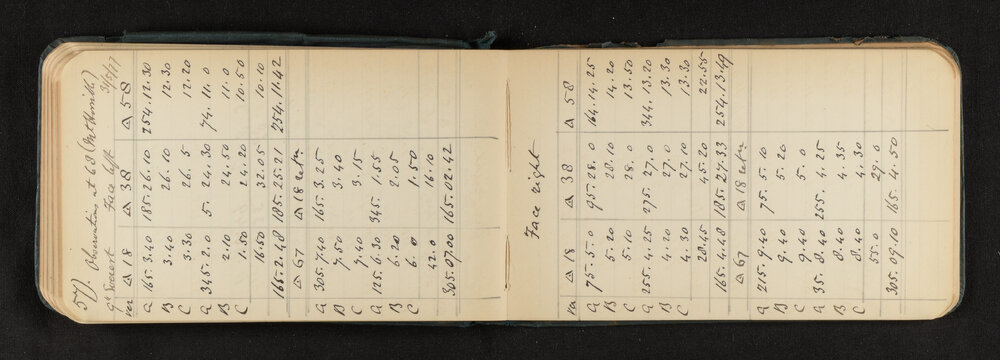 57). Observations at 68
Face left
ver △ 18 △ 38 △ 58
A 165.3.40 185.26.10 254.12.30
B 3.40 26.10 12.30
C 3.30 26.5 12.20
A 345.2.0 5.24.30 74.11.0
B 2.10 24.50 11.0
C 1.50 24.20 10.50
16.50 32.05 10.10
165.2.48 185.25.21 254.11.42
△ 67 △ 18 retn
A 305.7.40 165.3.25
B 7.50 3.40
C 7.40 3.15
A 125.6.30 345.1.55
B 6.20 2.05
C 6.0 1.50
42.0 16.10
305.07.00 165.02.42
Face right
ver △ 18 △ 38 △ 58
A 75.5.0 95.28.0 164.14.25
B 5.20 28.10 14.20
C 5.10 28.0 13.50
A 255.4.25 275.27.0 344.13.20
B 4.20 27.0 13.30
C 4.30 27.10 13.30
28.45 45.20 22.55
165.4.48 185.27.33 254.13.49
△ 67 △ 18 retn
A 215.9.40 75.5.10
B 9.40 5.20
C 9.40 5.0
A 35.8.40 255.4.25
B 8.40 4.35
C 8.40 4.30
55.0 29.0
305.09.10 165.4.50